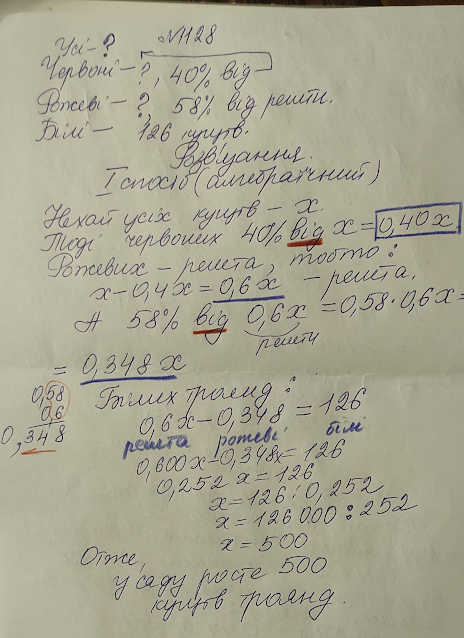 №1128
Усі - ?
Червоні - ?, 40% від
Рожеві - ?, 58% від решти.
Білі - 126 кущів.
Розв'язання.
I спосіб (алгебраїчний)
Нехай усіх кущів - x.
Тоді червоних 40% від x = 0,40x
Рожевих - решта, тобто:
x - 0,4x = 0,6x - решта.
А 58% від 0,6x = 0,58 · 0,6x =
решти
= 0,348x
0,58
0,6
0,348
Білих троянд:
0,6x - 0,348 = 126
решта рожеві білі
0,600x - 0,348x = 126
0,252 x = 126
x = 126 : 0,252
x = 126000 : 252
x = 500
Отже,
у саду росте 500
кущів троянд.